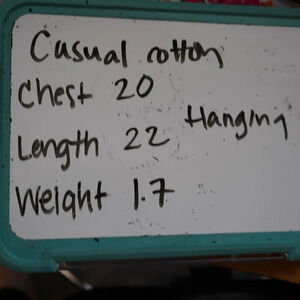 Casual cotton
Chest 20
Hanging
Length 22
Weight 1.7